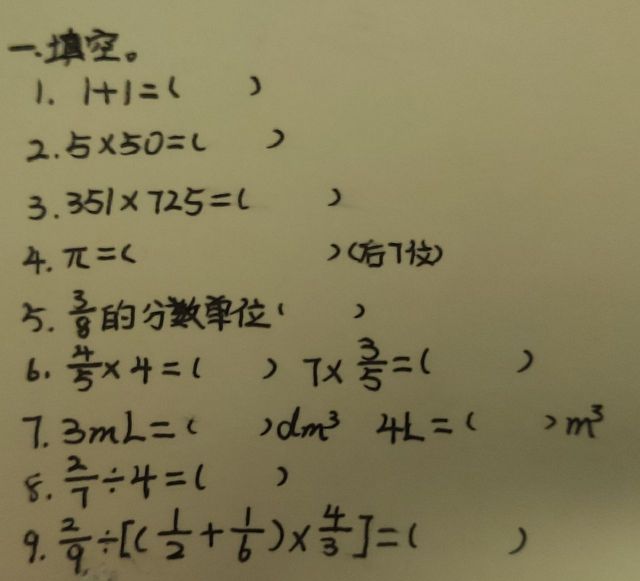 一.填空。
1. 1+1=( )
2. 5×50=( )
3. 351×725=( )
4. π=( )(后7位)
5. 3/8的分数单位( )
6. 4/5×4=( ) 7×3/5=( )
7. 3mL=( )dm³ 4L=( )m³
8. 2/7÷4=( )
9. 2/9÷[(1/2+1/6)×4/3]=( )